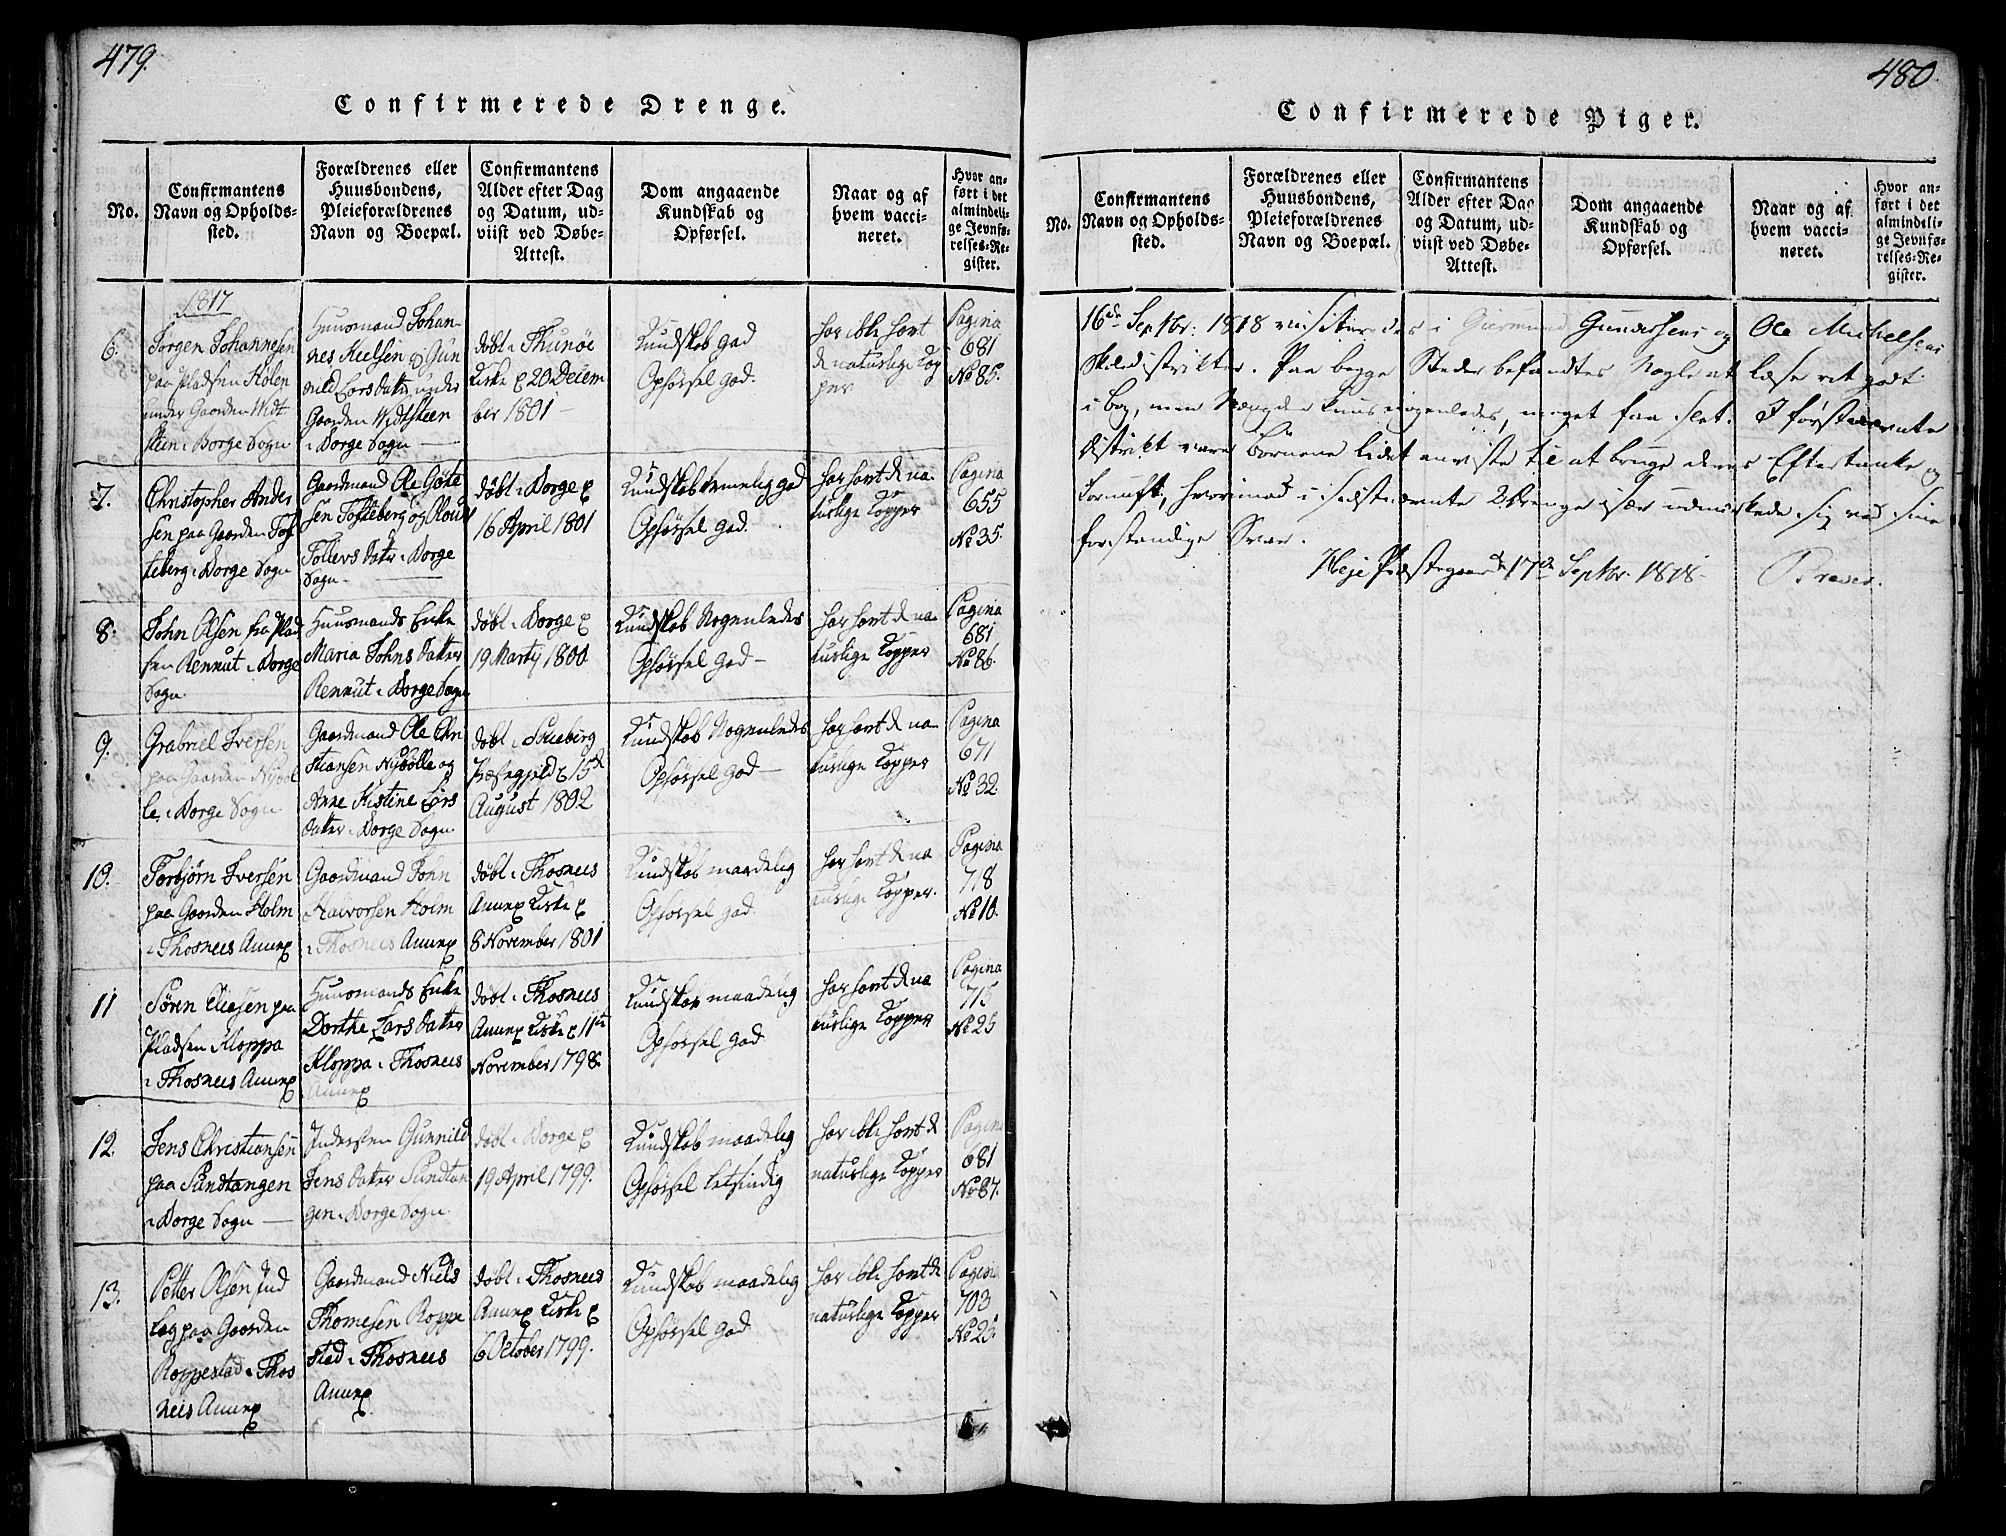 479.
Confirmerede Drenge.
No.
Confirmantens
Navn og Opholds-
sted.
Forældrenes eller
Huusbondens,
Pleieforældrenes
Navn og Boepæl.
Confirmantens
Alder efter Dag
og Datum, ud-
viist ved Døbe-
Attest.
Dom angaaende
Kundskab og
Opførsel.
Naar og af
hvem vacci-
neret.
Hvor an-
ført i det
almindeli-
ge Jevnfø-
relses-Re-
gister.
1817
6.
Jørgen Johannesen
paa Pladsen Holen
under Gaarden Widt
steen i Borge Sogn
Huusmand Johan-
nes Keelsen og Gun
nild Lars Datter under
Gaarden Widtsteen
i Borge Sogn
døbt i Thunøe
Kirke 20 Decem
ber 1801
Kundskab god
Opførsel god.
har ikke havt
de naturlige Kop
per
Pagina
681
No 85.
7.
Christopher Ander
sen paa Gaarden Tof
teberg i Borge Sogn
Gaardmand Ole Gøte
sen Tofteberg og
Tollevs Datter i Borge
Sogn
døbt i Borge
16 April 1801
Kundskab temmelig god
Opførsel god.
har havt de na-
turlige Kopper
Pagina
655
No 35.
8.
John Olsen fra Plad
sen Rennut i Borge
Sogn
Huusmands Enke
Maria Johns Datter
Rennut i Borge Sogn
døbt i Borge
19 Martij 1800
Kundskab Nogenledes
Opførsel god
har havt de na-
turlige Kopper
Pagina
681
No 86.
9.
Grabriel Iversen
paa Gaarden Nyböl
le i Borge Sogn
Gaardmand Ole Chri
stiansen Nybölle og
Anne Kistine Lars
datter i Borge Sogn
døbt i Skieberg
Præstegield 15de
August 1802
Kundskab Nogenledes
Opførsel god
har havt de na-
turlige Kopper
Pagina
671
No 32.
10.
Torbjørn Iversen
paa Gaarden Holm
i Thosnees Annex
Gaardmand John
Halvorsen Holm
i Thosnees Annex
døbt i Thosnees
Annex Kirke
8 November 1801
Kundskab maadelig
Opførsel god
har havt de na
turlige Kopper.
Pagina
718
No 10.
11
Søren Eliesen paa
Pladsen Kloppa
i Thosnees Annex
Huusmands Enke
Dorthe Lars Datter
Kloppa i Thosnees
Annex
døbt i Thosnees
Annex Kirke 11te
November 1798
Kundskab maadelig
Opførsel god
har havt de na
turlige Kopper
Pagina
715
No 25
12.
Jens Christiansen
paa Sundtangen
i Borge Sogn
Indersten Gunnild
Jens Datter Sundtan
gen i Borge Sogn
døbt i Borge
19 April 1799.
Kundskab maadelig
Opførsel letsindig
har ikke havt de
naturlige Kopper
Pagina
681
No 87.
13.
Petter Olsen Ind
log paa Gaarden
Roppestad i Thos
nees Annex
Gaardmand Niels
Thomesen Roppe
stad i Thosnees
Annex
døbt i Thosnees
Annex Kirke
6 October 1799.
Kundskab maadelig
Opførsel god
har ikke havt de
naturlige Kopper
Pagina
703
No 25
480.
Confirmerede Piger.
No.
Confirmantens
Navn og Opholds-
sted.
Forældrenes eller
Huusbondens,
Pleieforældrenes
Navn og Boepæl.
Confirmantens
Alder efter Dag
og Datum, ud-
viist ved Døbe-
Attest.
Dom angaaende
Kundskab og
Opførsel.
Naar og af
hvem vacci-
neret.
Hvor an-
ført i det
almindeli-
ge Jevnfø-
relses-Re-
gister.
16de Septbr: 1818 visiteredes i Giermund Gundersens og Ole Michelsens
Skoledistrikter. Paa begge Steder befandtes Nogle at læse ret godt
i Bog, men Mængden kuns nogenledes, meget faa slet. I førstnævnte
District vare Börnene lidet anviste til at bruge deres Eftertanke og
Fornuft, hvorimod i sidstnævnte 2 Drenge især udmærkede sig ved sine
forstandige Svar.
Præstegaard 17de Septbr. 1818.